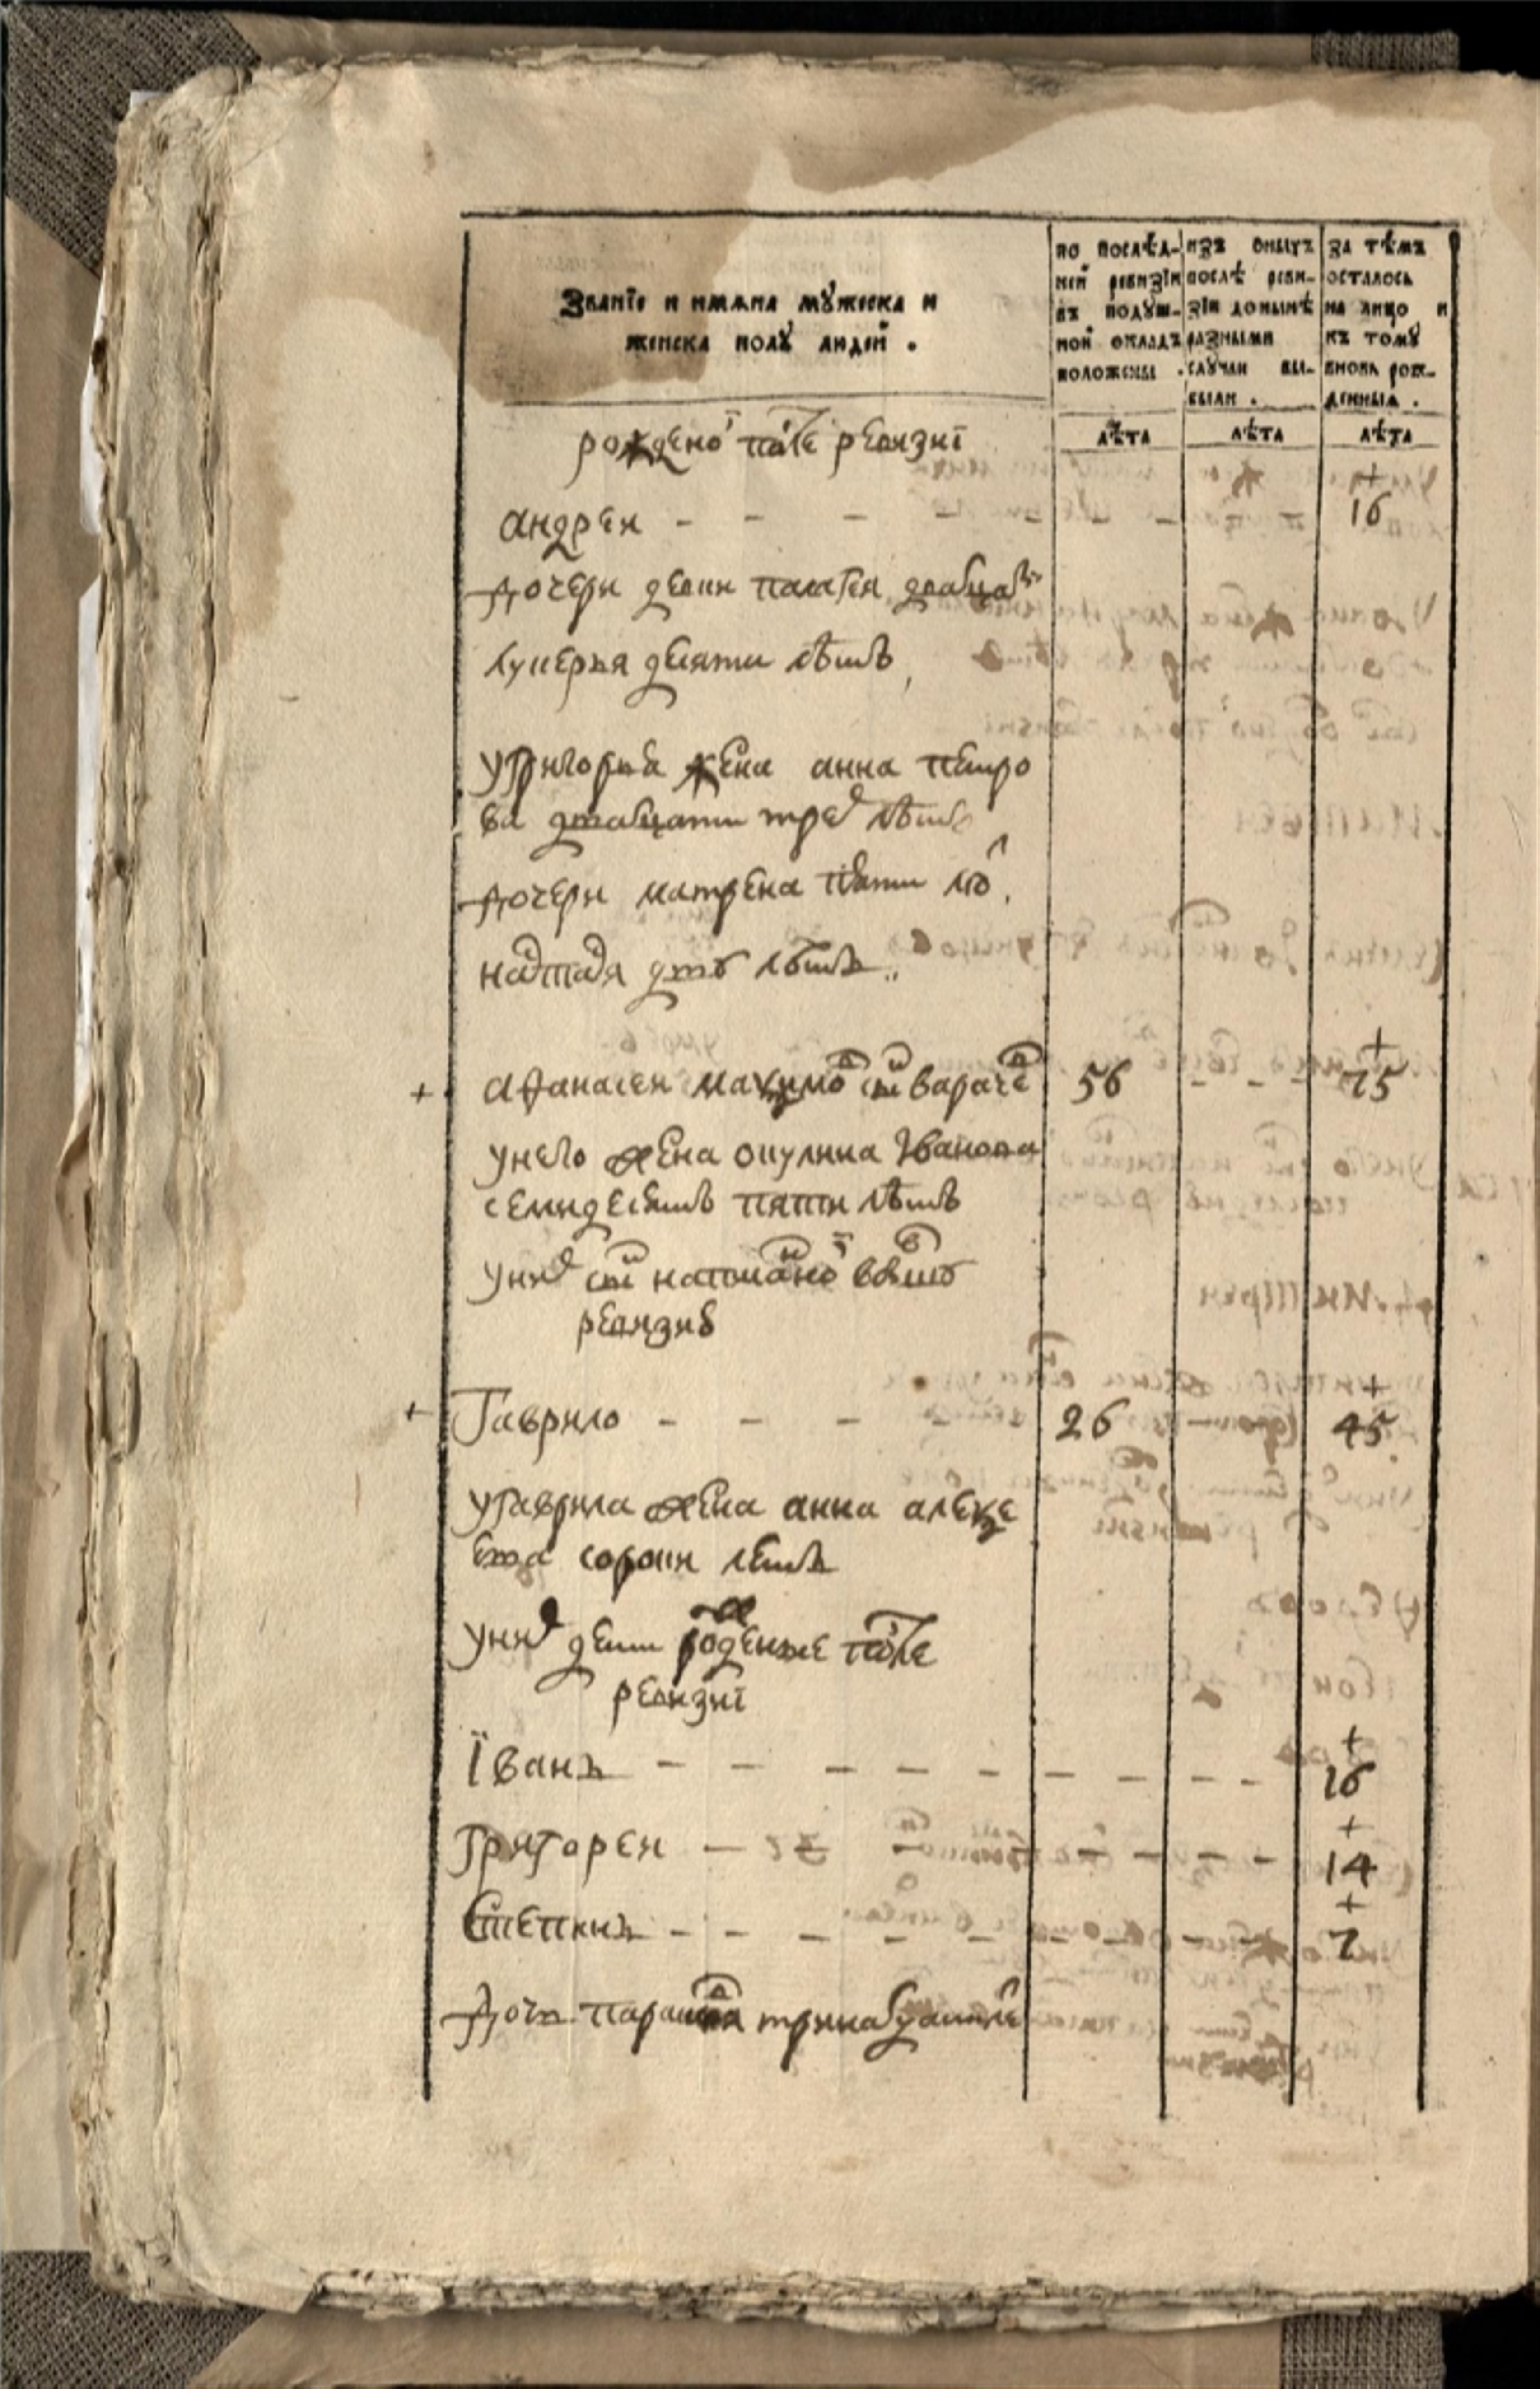 Званїе и имѧна мꙋжеска и
женска полꙋ людей .
по послѣд-
ней ревизїи
въ подꙋш-
ной окладъ
положены .
изъ оныхъ
послѣ реви-
зїи донынѣ
разными
случаи вы-
были .
за тѣмъ
осталось
на лицо и
къ томꙋ
вновь рож-
денныя .
лѣта лѣта лѣта
рожденой после ревизиї
андреи - - - - - - - 16
дочери девки палагея
лукерья десяти лѣтъ
угригорья жена анна петро
ва дватцати трех лѣтъ
дочери матрена пяти лѣ
надтадя дву лѣтъ
+ афанасеи маѯимов сн варачев 56 - - - 75
унего жена окулина Ивановна
семидесятъ пяти лѣтъ
уних сн написаной ввышъ
ревизиѣ
+ Гаврило - - - - 26 - - 45
угаврила жена анна алеѯе
ева сороки летъ
уних дети рожденые после
ревизиї
Їванъ - - - - - - - - - 16
григореи - - - - - - 14
Степанъ - - - - - - - - 7
дочь парасковя тринатцати ле